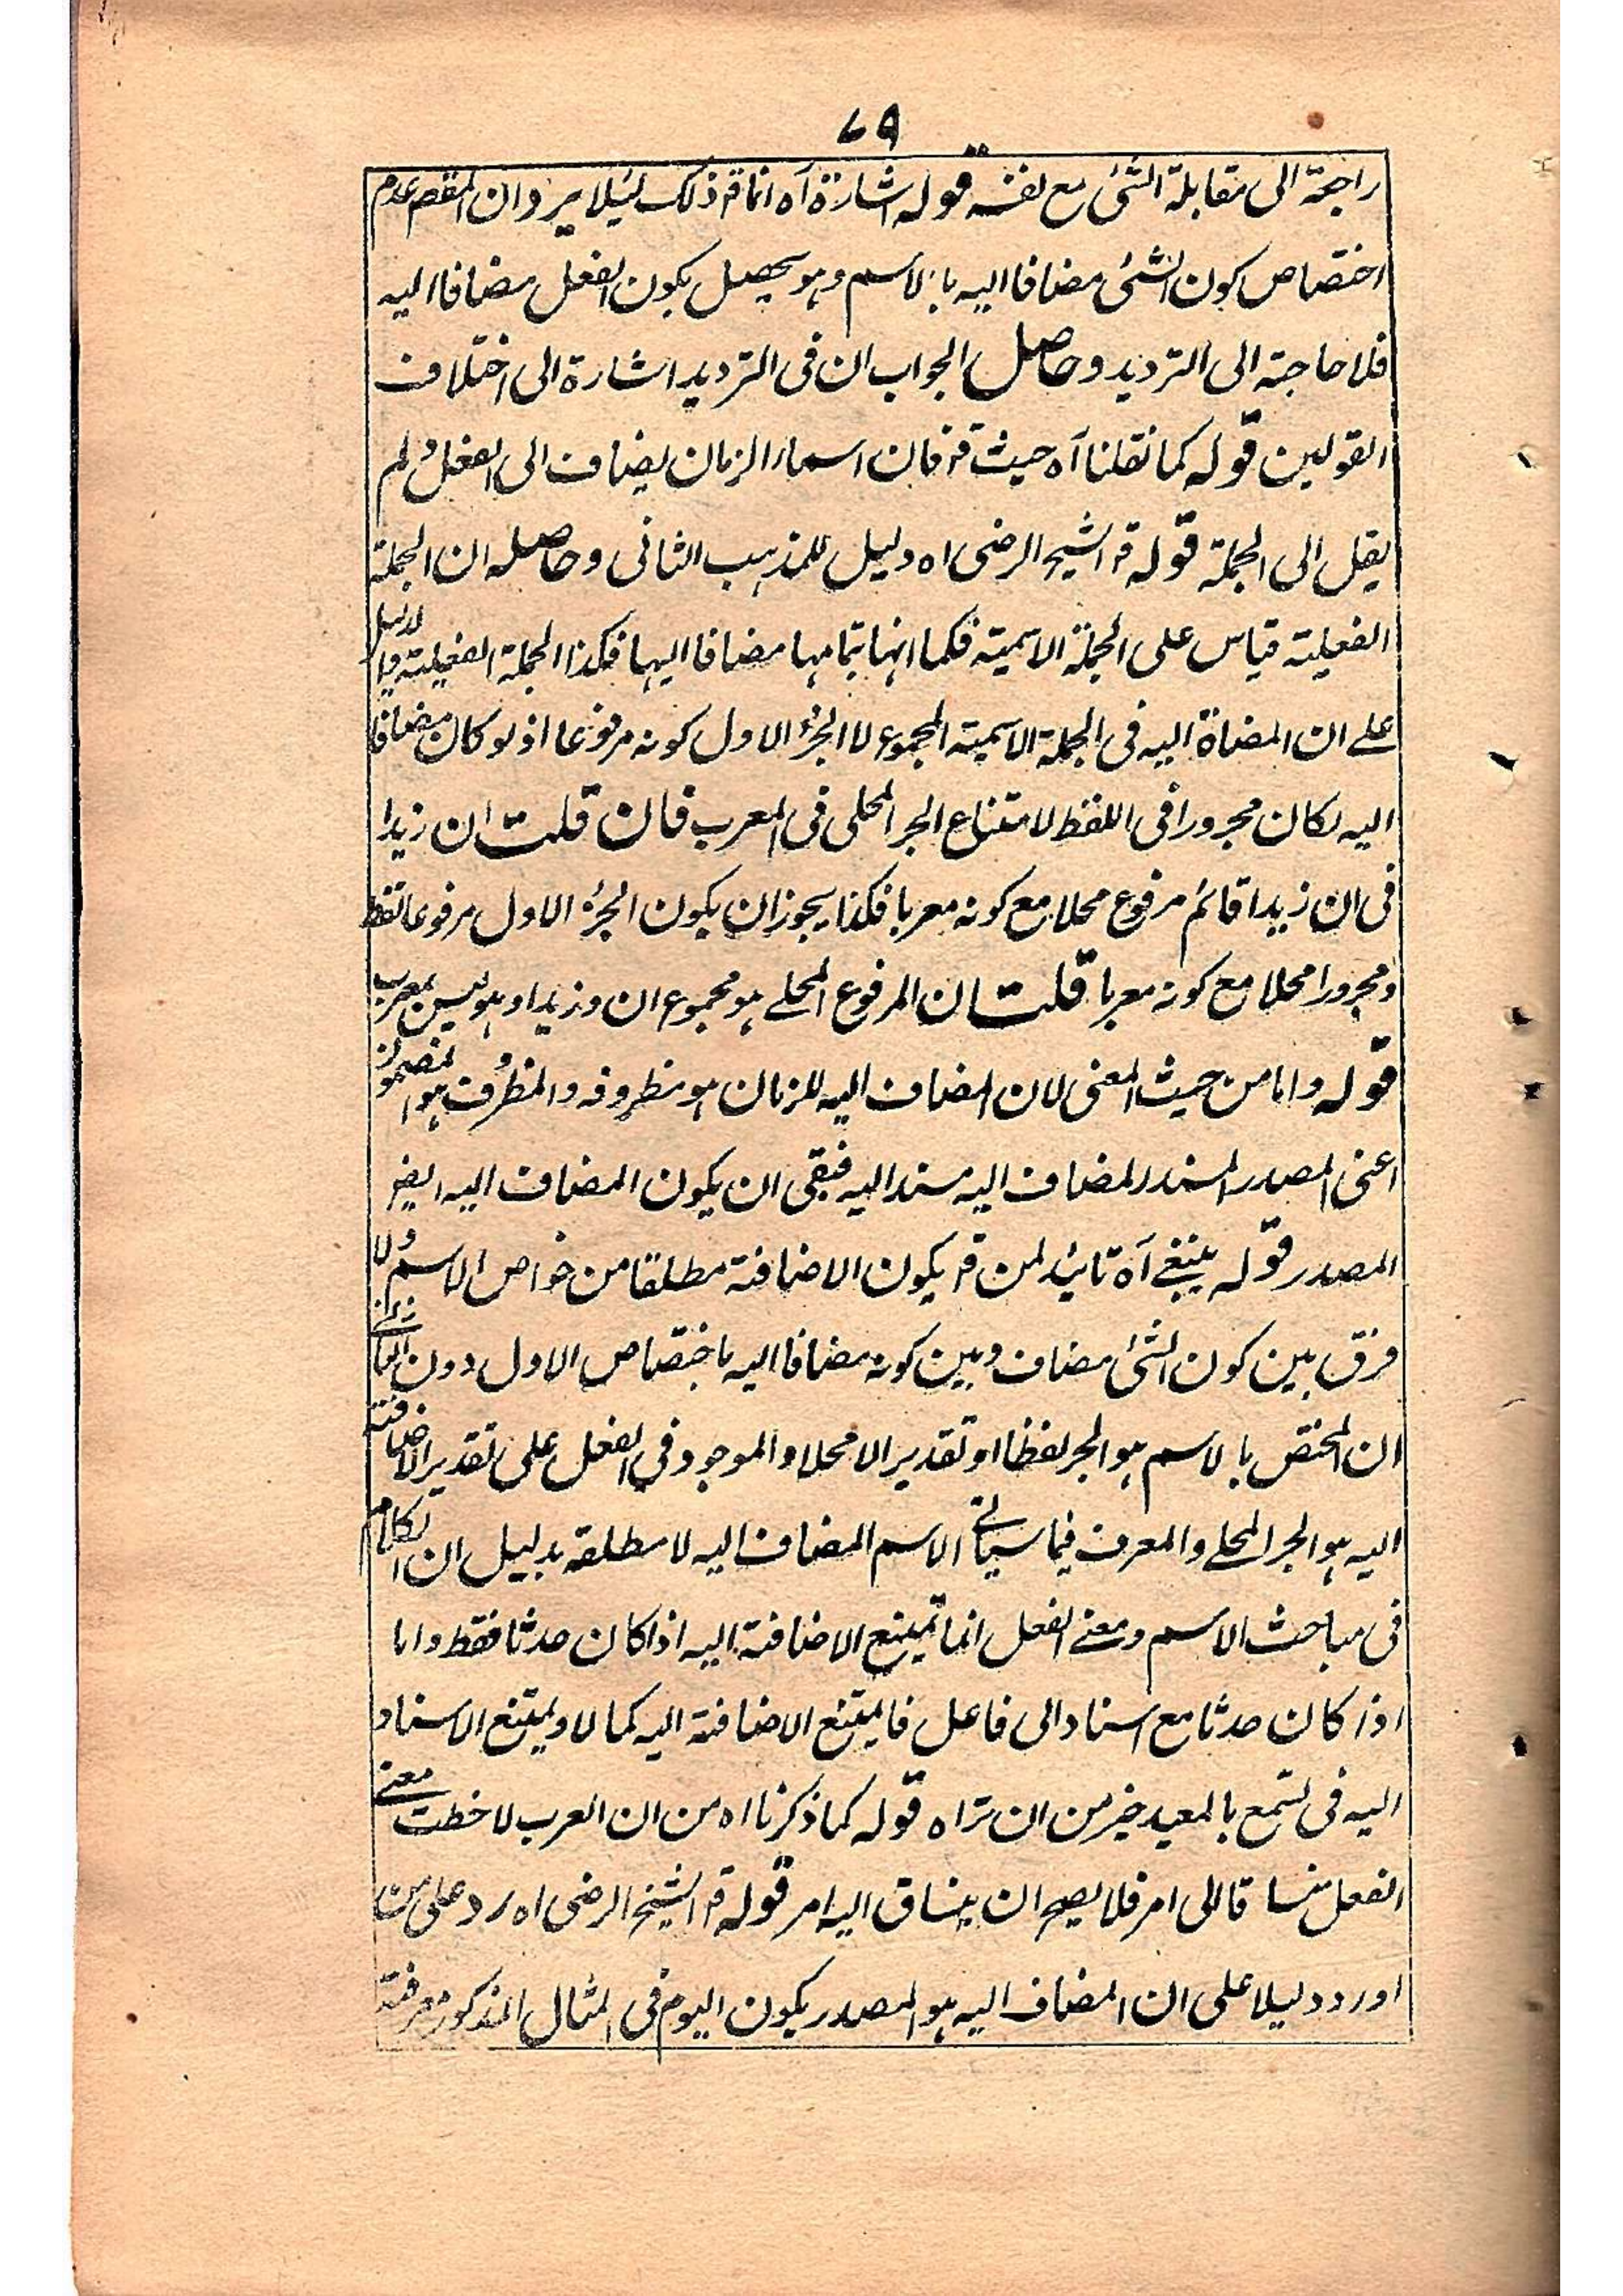 ٧٩
راجعة الى مقابلة الشئ مع نفسه قوله اشارة آه انما قه ذلك لئيلا يرد ان المقصم عدم
اختصاص كون الشئ مضافا اليه بالاسم وهو يحصل بكون الفعل مضافا اليه
فلا حاجة الى الترديد وحاصل الجواب ان فى الترديد اشارة الى اختلاف
القولين قوله كما نقلنا آه حيث قه فان اسماء الزمان يضاف الى الفعل ولم
يقل الى الجملة قوله قه الشيخ الرضى اه دليل للمذهب الثانى وحاصله ان الجملة
الفعلية قياس على الجملة الاسمية فكما انها بتمامها مضافا اليها فكذا الجملة الفعلية والدليل
على ان المضاة اليه فى الجملة الاسمية المجموع لا الجزء الاول كونه مرفوعا اذ لو كان مضافا
اليه لكان مجرورا فى اللفظ لامتناع الجر المحلى فى المعرب فان قلت ان زيدا
فى ان زيدا قائم مرفوع محلا مع كونه معربا فكذا يجوز ان يكون الجزء الاول مرفوعا لفظا
ومجرورا محلا مع كونه معربا قلت ان المرفوع المحلے هو مجموع ان وزيدا وهو ليس بمعرب
قوله واما من حيث المعنى لان المضاف اليه للزمان هو مظروفه والمظرف هو المضمون
اعنى المصدر المسند المضاف اليه مسند اليه فبقى ان يكون المضاف اليه ايضر
المصدر قوله ينبغے آه تائيد لمن قه يكون الاضافة مطلقا من خواص الاسم ولا
فرق بين كون الشئ مضاف وبين كونه مضافا اليه باختصاص الاول دون الثانى
ان المختص بالاسم هو الجر لفظا او تقديرا لا محلا والموجود في الفعل على تقدير الاضافة
اليه هو الجر المحلے والمعرف فيما سياتے الاسم المضاف اليه لا مطلقه بدليل ان الكلام
فى مباحث الاسم ومعنے الفعل انما تمتنع الاضافة اليه اذا كان حدثا فقط واما
اذا كان حدثا مع اسناد الى فاعل فا يمتنع الاضافة اليه كما لا ويمتنع الاسناد
اليه فى تسمع بالمعيد خير من ان تراه قوله كما ذكرنا اه من ان العرب لاحظت معنے
الفعل منساقا الى امر فلا يصح ان ينساق اليه امر قوله قه الشيخ الرضى اه رد على من
اورد دليلا على ان المضاف اليه هو المصدر بكون اليوم فى المثال المذكور معرفة